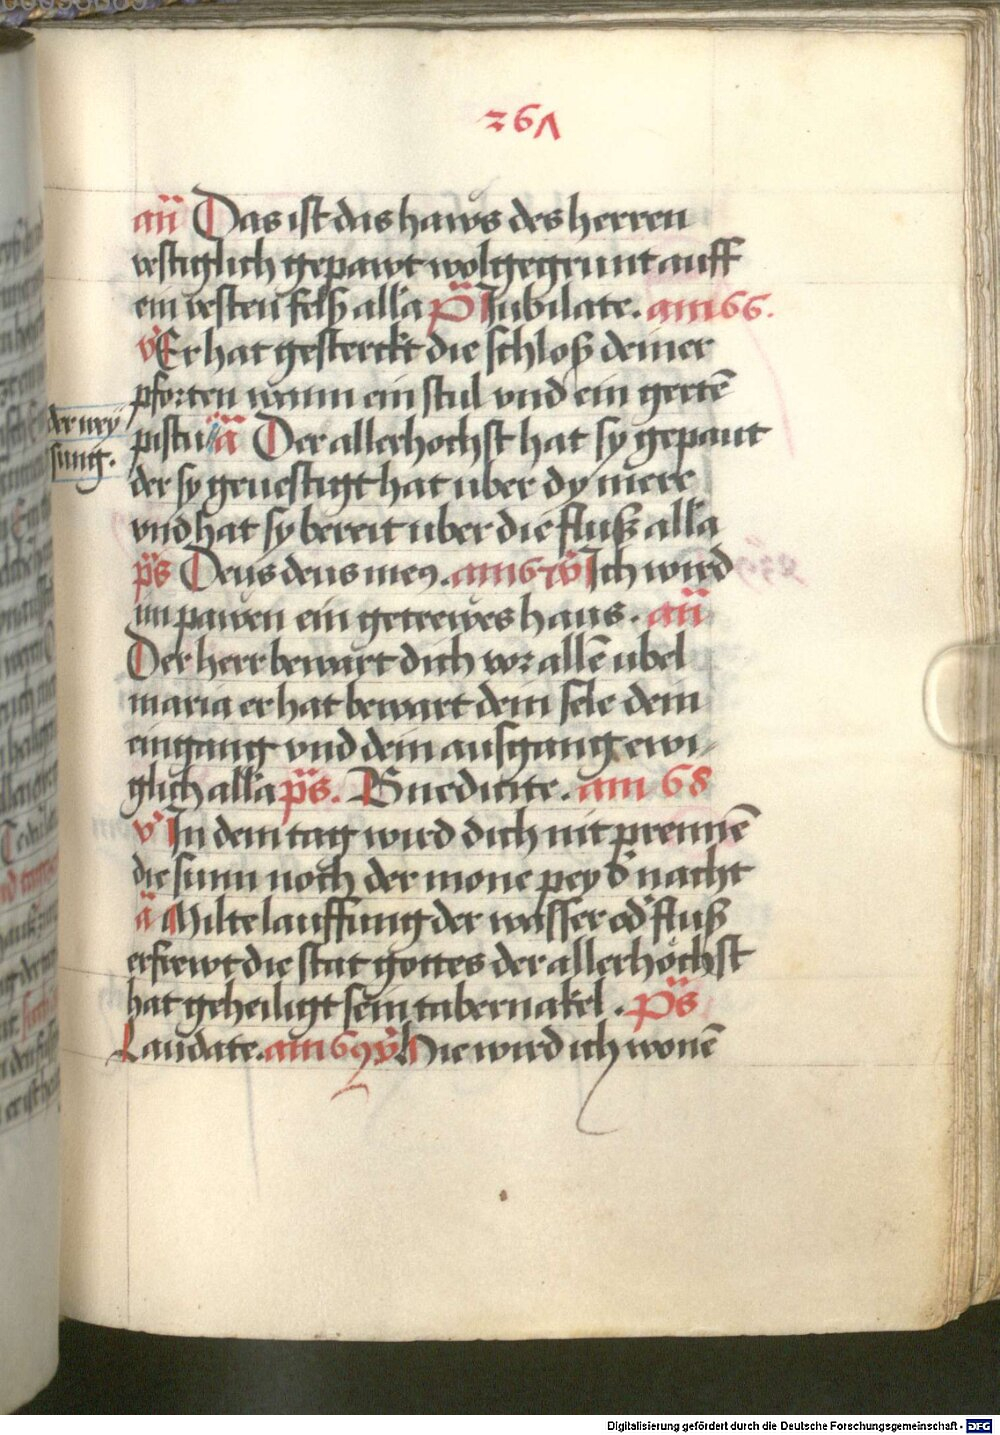 267
an̈ Das ist das haws des herren
vestiglich gepawt wolgegrunt auff
ein vesten felß alla p̈s Jubilate. am 66.
v̓ Er hat gesterckt die schloß deiner
pforten wann ein stul vnd ein gertē
pistu ä Der allerhochst hat sy gepaut
der wey
sung.
der sy geuestigt hat uber dy mere
vnd hat sy bereit uber die fluß alla
p̈s Deus deus meꝰ. am 67 v̓ Ich wird
im pawen ein getrewes haus. an̈
Der herr bewart dich vor allē ubel
maria er hat bewart dein sele dein
eingang vnd dein ausgang ewi-
glich alla p̈s. Bnedicite. am 68
v̓ In dem tag wird dich nit prennē
die sunn noch der mone pey d̓ nacht
ä Milte lauffung der wasser od̓ fluß
erfrewt die stat gottes der allerhöchst
hat geheiligt sein tabernakel. p̈s
Laudate. am 69 v̓ Hie wird ich wonē
Digitalisierung gefördert durch die Deutsche Forschungsgemeinschaft - DFG